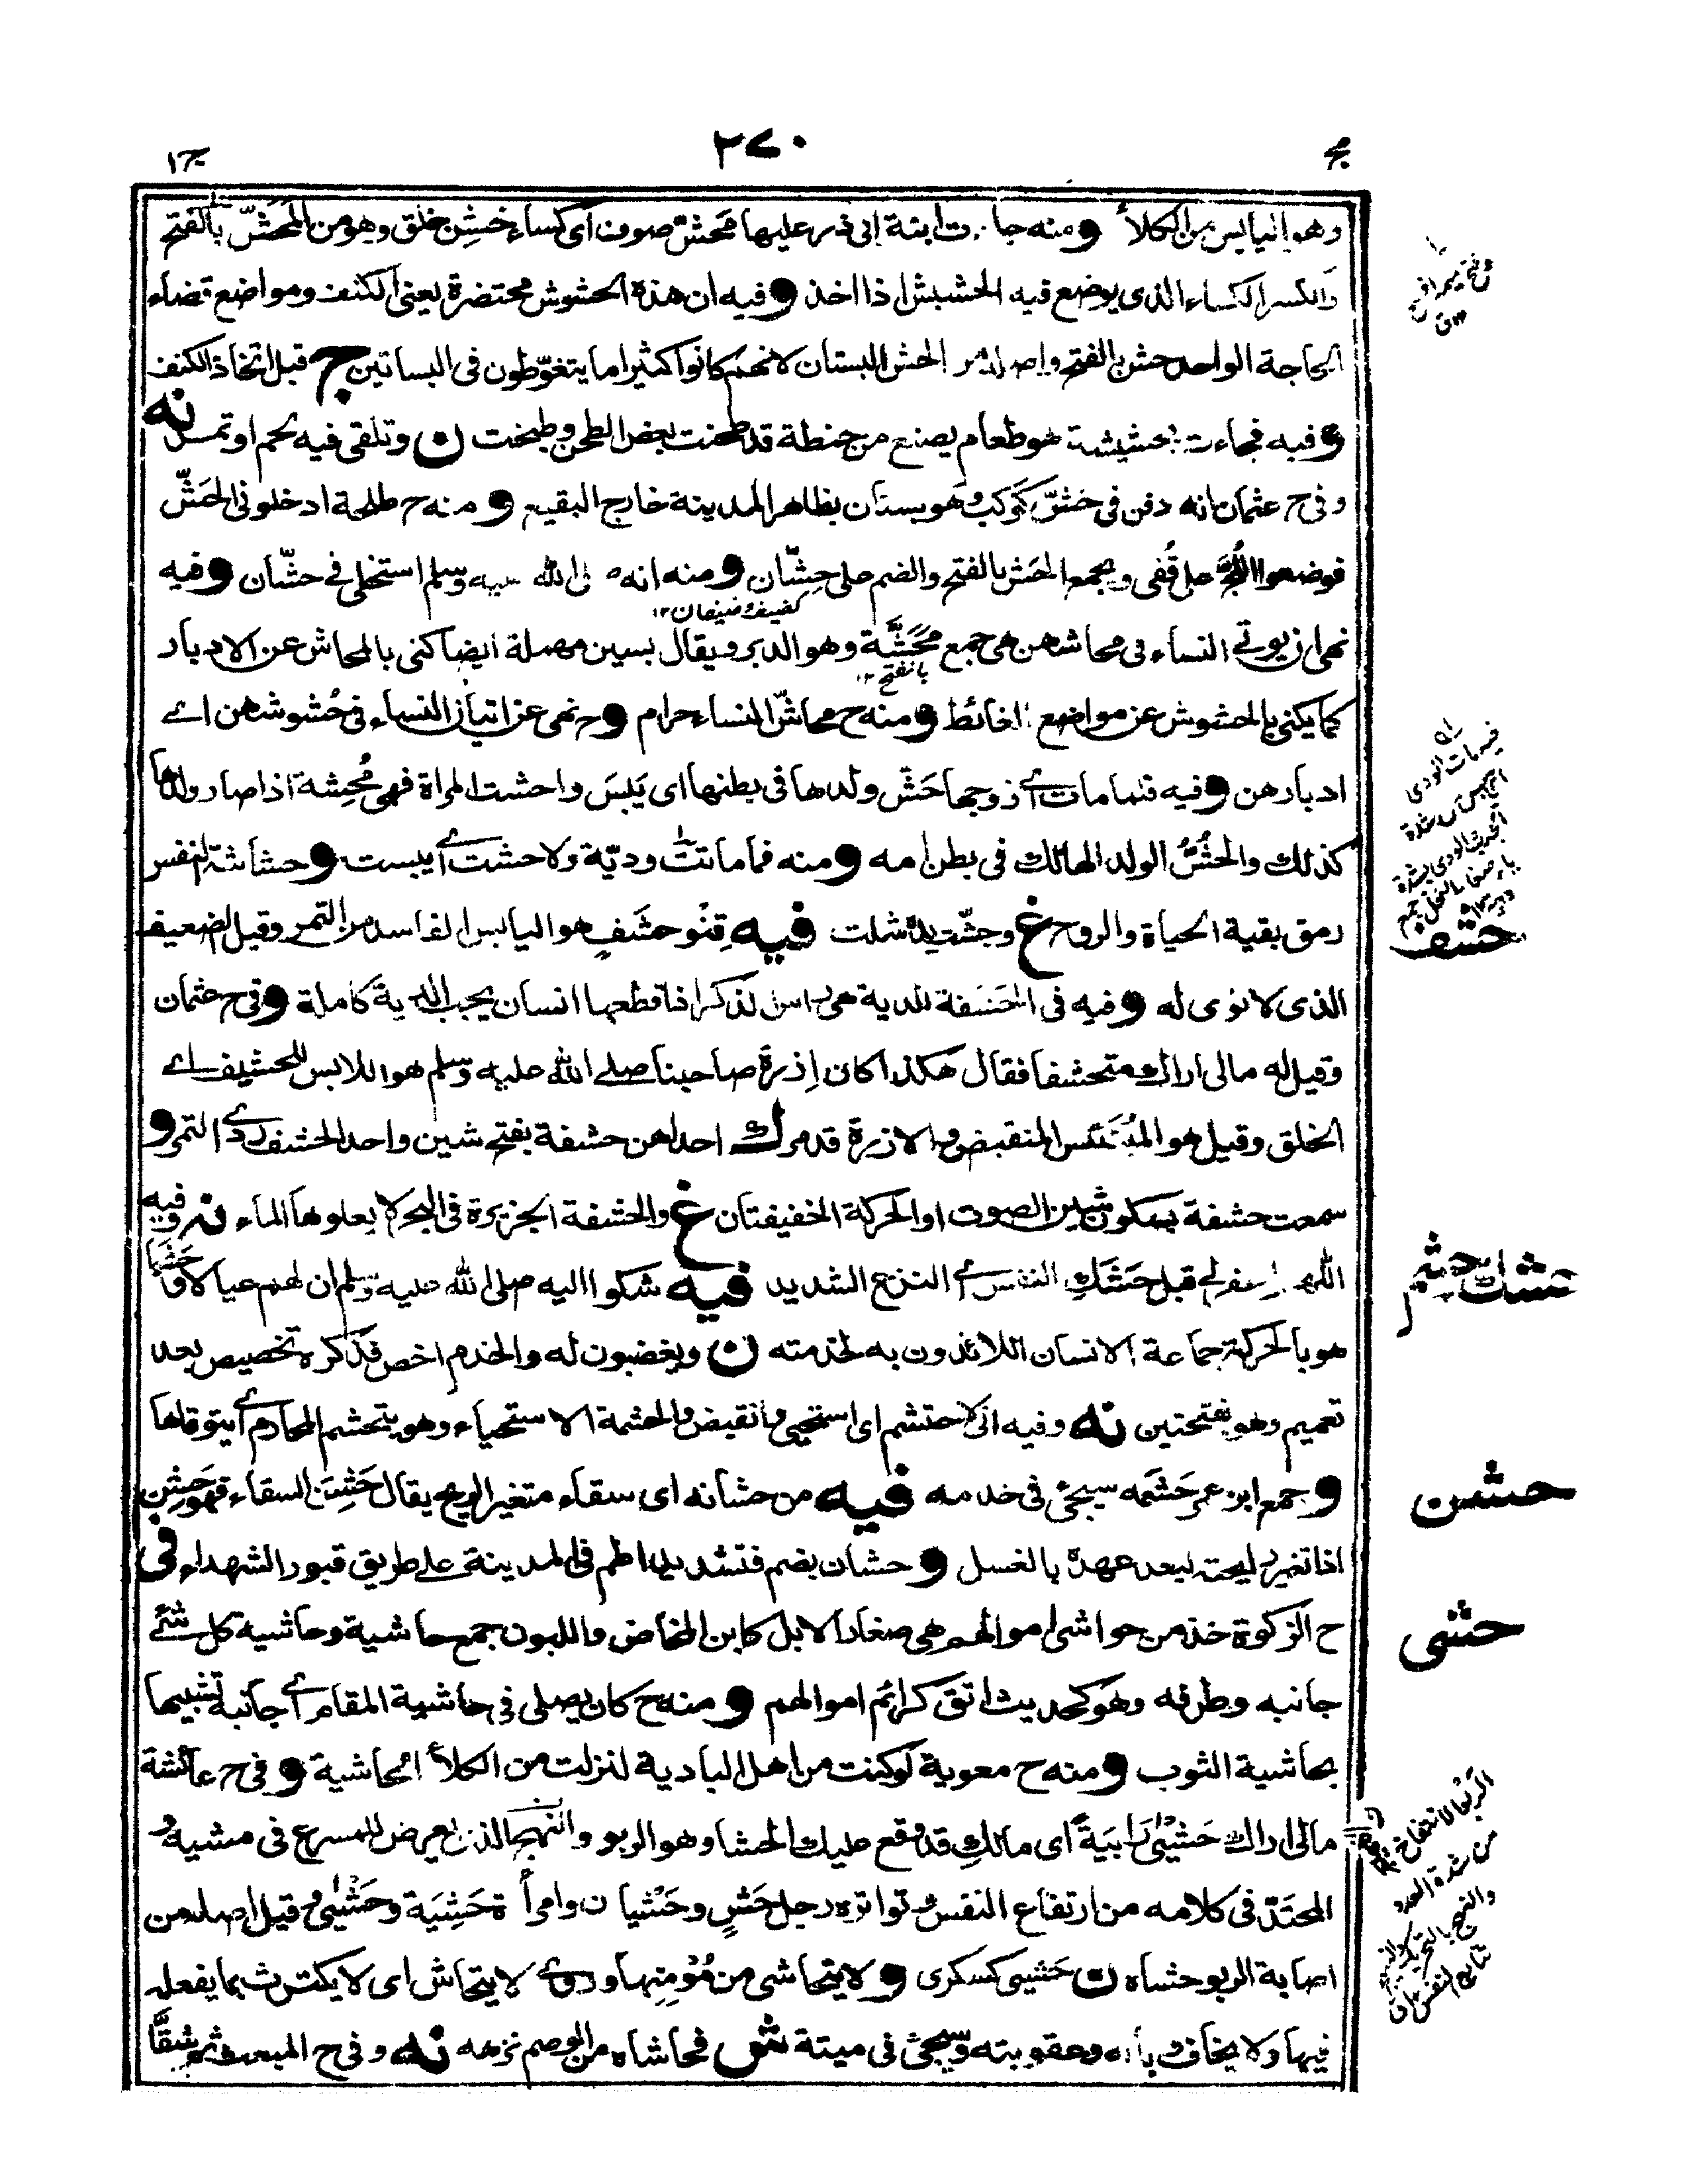 ج١
٢٧٠
وهو اليابس من الكلأ ومنه جاءت ابنة ابى ذر عليها محش صوف اى كساء خشن خلق وهو من المحش بالفتح
والكسر الكساء الذى يوضع فيه الحشيش اذا اخذ وفيه ان هذه الحشوش محتضرة يعنى الكنف ومواضع قضاء
الحاجة الواحد حش بالفتح واصله من الحش البستان لانهم كانوا كثيرا ما يتغوّطون فى البساتين ج قبل اتخاذ الكنف نه
وفيه فجاءت بحشيشة هو طعام يصنع من حنطة قد طحنت بعض الطحن وطبخت ن وتلقى فيه لحم او تمر
وفى ح عثمان انه دفن فى حشّ كوكب وهو بستان بظاهر المدينة خارج البقيع ومنه ح طلحة ادخلونى الحَشّ
فوضعوا اللُّجّ على قُفى ويجمع الحش بالفتح والضم على حِشّان ومنه انه صلى الله عليه وسلم استخلى فى حشّان وفيه
كضيف وضيفان ١٢
نهى ان يوتے النساء فى محاشهن هى جمع مَحَشَّة وهو الدبر ويقال بسين مهملة ايضا كنى بالمحاش عن الادبار
بالفتح ١٢
كما يكنى بالحشوش عن مواضع الغائط ومنه ح محاشّ النساء حرام وح نهى عن اتيان النساء فى حُشوشهن اے
ادبارهن وفيه فلما مات اے زوجها حَشّ ولدها فى بطنها اى يَبِسَ واحشت المراة فهى مُحِشة اذا صار ولدها
كذلك والحُشُّ الولد الهالك فى بطن امه ومنه فما ماتت وديّة ولا حشت اے يبست وحشاشة النفس
رمق بقية الحياة والروح غ وحشّت يده شلت فيه قِنْو حشَفٍ هو اليابس الفاسد من التمر وقيل الضعيف
حشف
الذى لا نوى له وفيه فى الحَشَفة الدية هى راس الذكر اذا قطعها انسان يجب الدية كاملة وفى ح عثمان
وقيل له مالى اراك متحشفا فقال هكذا كان اِذرة صاحبنا صلے الله عليه وسلم هو اللابس للحشيف اے
الخلق وقيل هو المبتئس المنقبض والازرة قد مر ك احداهن حشفة بفتح شين واحد الحشف ردى التمر و
سمعت حشفة بسكون شين الصوت او الحركة الخفيفتان غ والحشفة الجزيرة فى البحر لا يعلوها الماء نه وفيه
اللهم اغفر لے قبل حَشَكِ النفس اے النزع الشديد فيه شكوا اليه صلى الله عليه وسلم ان لهم عيالا وحَشَما
حشك حشم
هو بالحركة جماعة الانسان اللائذون به لخدمته ن ويغضبون له والخدم اخص فذكره تخصيص بعد
تعميم وهو بفتحتين نه وفيه انى لاحتشم اى استحيى وانقبض والحشمة الاستحياء وهو يتحشم المحارم اے يتوقاها
وجمع ابن عمر حَشَمه سيجئ فى خدمه فيه من حشانه اى سقاء متغير الريح يقال حَشِنَ السقاء فهو حَشِن
حشن
اذا تغير رايحته لبعد عهده بالغسل وحشان بضم فتشديد اطم فى المدينة على طريق قبور الشهداء فى
ح الزكوة خذ من حواشى اموالهم هى صغار الابل كابن المخاض واللبون جمع حاشية وحاشية كل شئے
حشى
جانبه وطرفه وهو كحديث اتق كرائم اموالهم ومنه ح كان يصلى فى حاشية المقام اے جانبه تشبيها
بحاشية الثوب ومنه ح معوية لو كنت من اهل البادية لنزلت من الكلأ الحاشية وفى ح عائشة
مالى اراك حَشْيَى رَابيَةً اى مالك قد وقع عليك الحشا وهو الربو والنهيج الذى يعرض للمسرع فى مشيه و
المحتدّ فى كلامه من ارتفاع النفس وتواتره رجل حَشٍ وحَشْيان وامرأة حَشِيَة وحَشْيَى وقيل اصله من
اصابة الربو حشاه ن حَشيى كسكرى ولا يتحاشى من مُؤمِنِها وروى لا يتحاش اى لا يكترث بما يفعله
فيها ولا يخاف وباله وعقوبته وسيجئ فى ميتة ش فحاشاه من الوصم نزهه نه وفى ح المبعث ثم شقّا